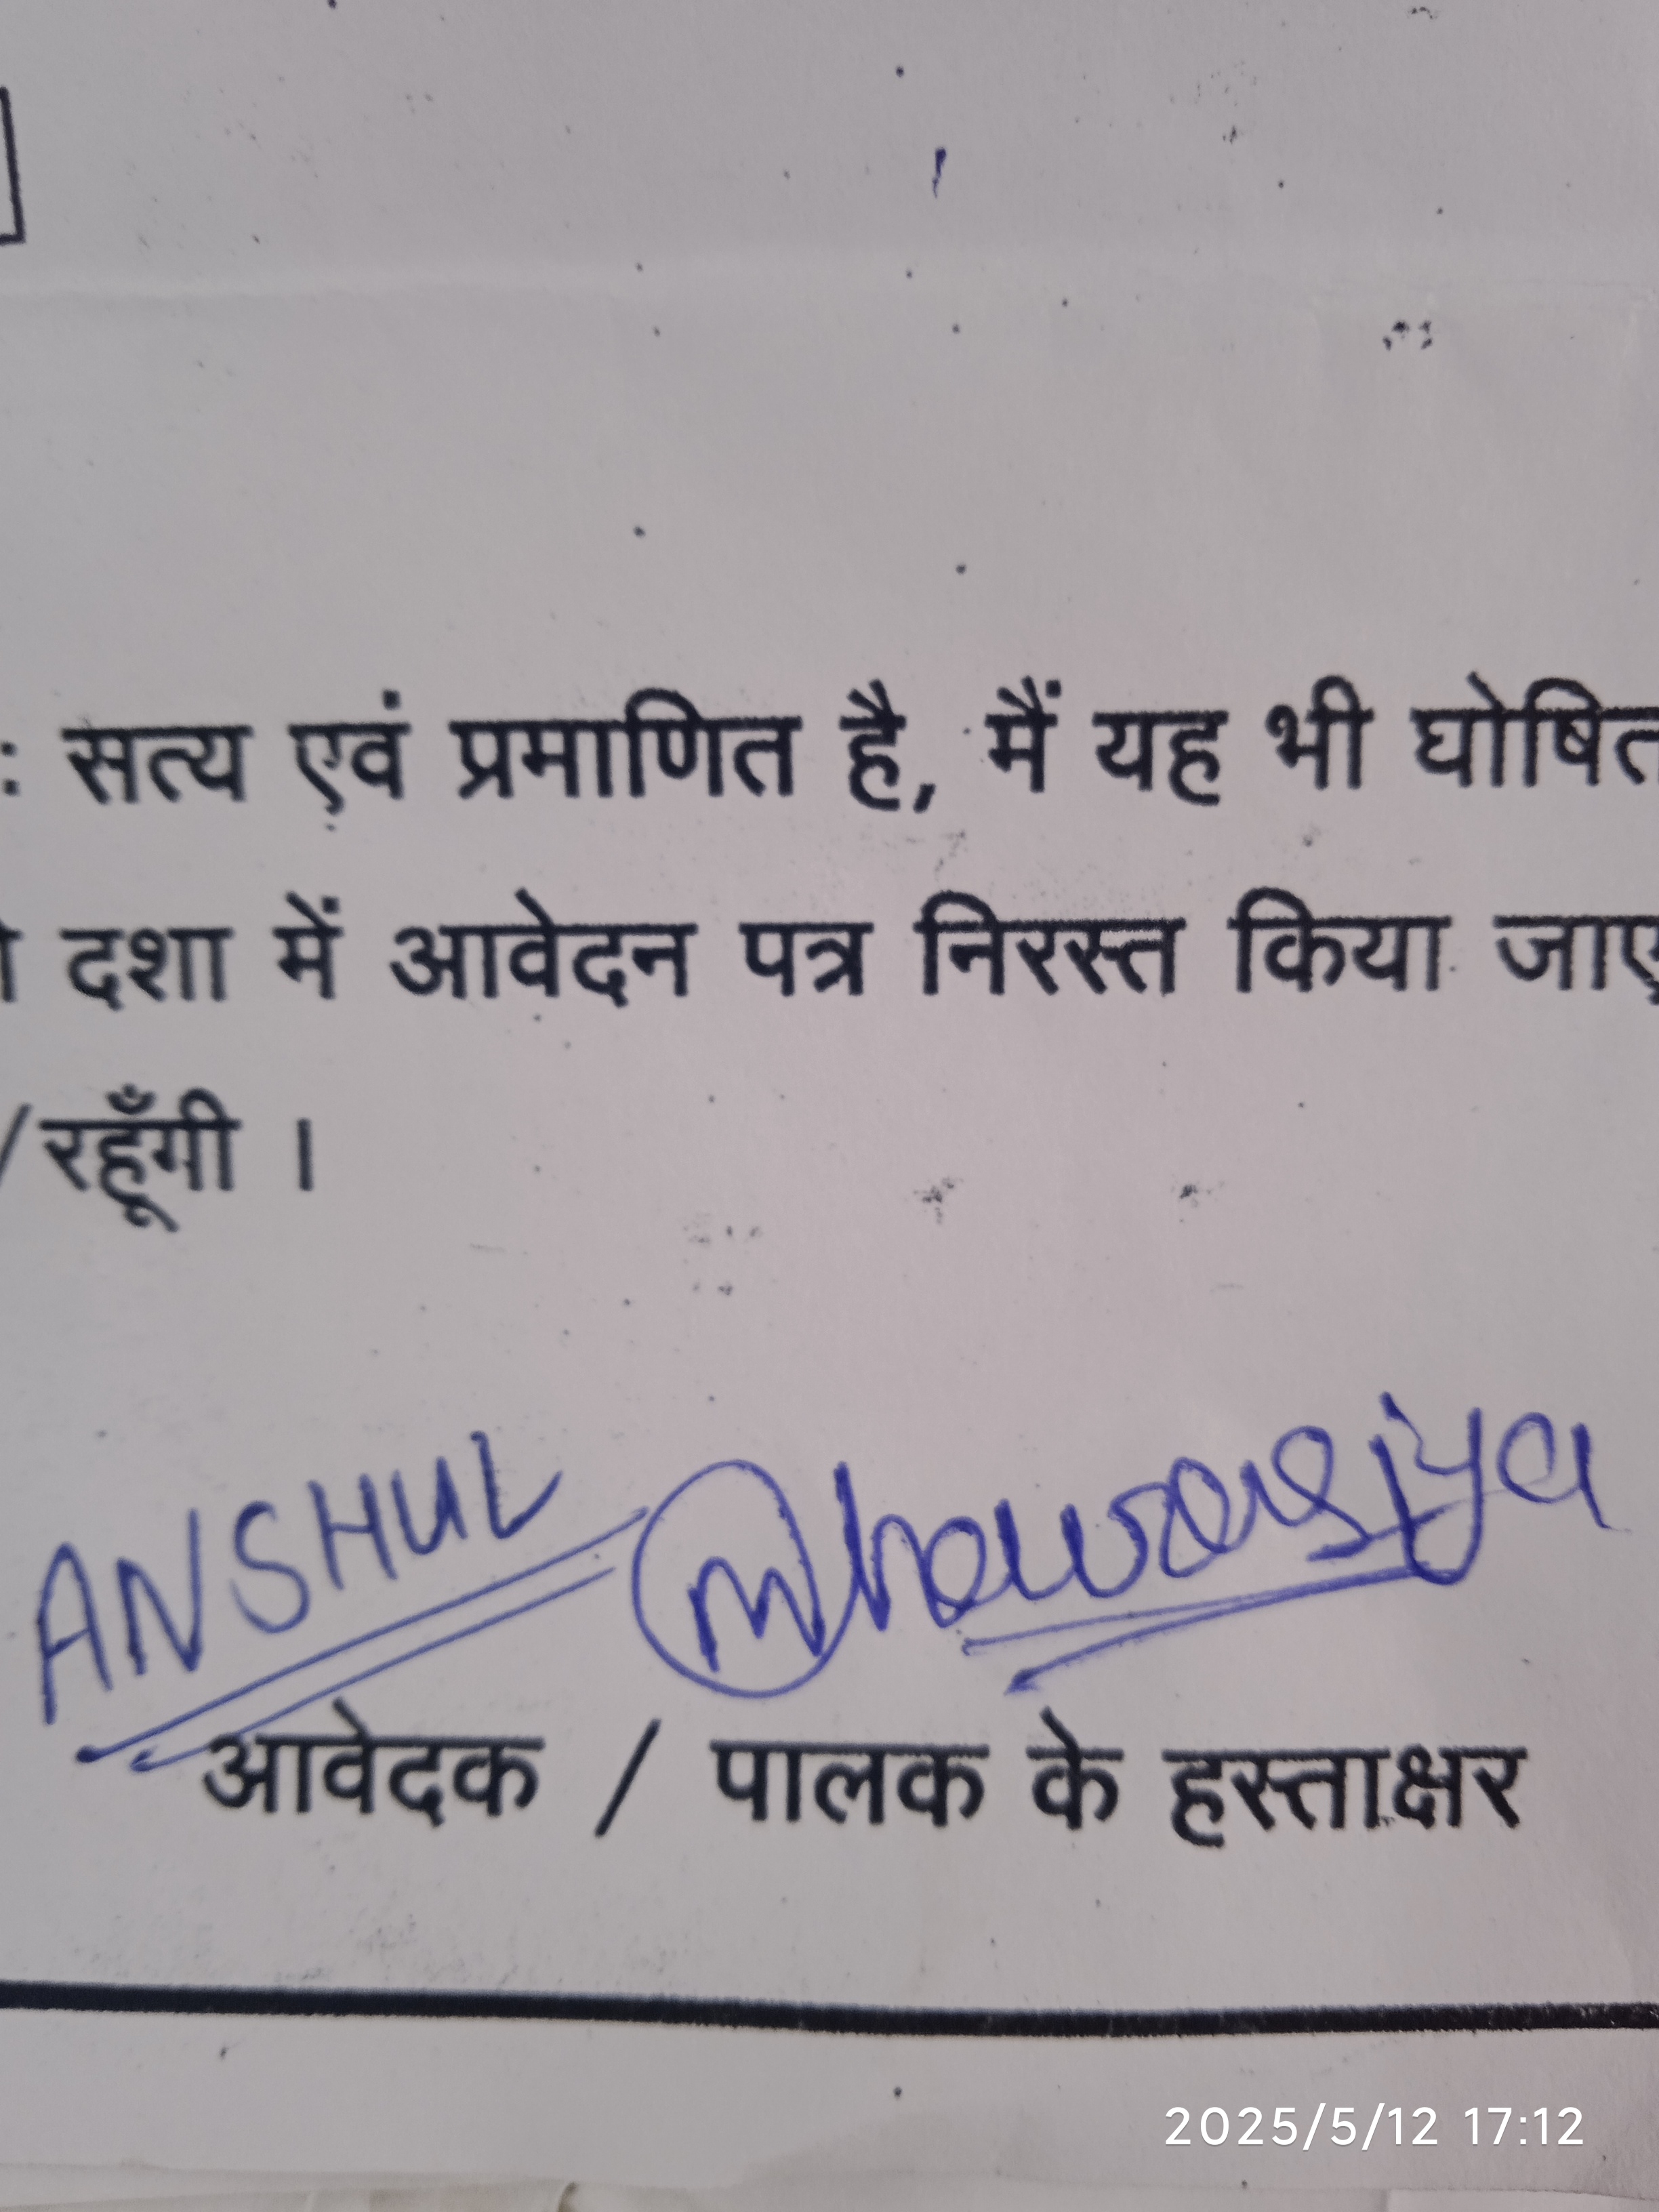 : सत्य एवं प्रमाणित है, मैं यह भी घोषित
दशा में आवेदन पत्र निरस्त किया जाए
/रहूँगी ।
ANSHUL
आवेदक / पालक के हस्ताक्षर
2025/5/12 17:12